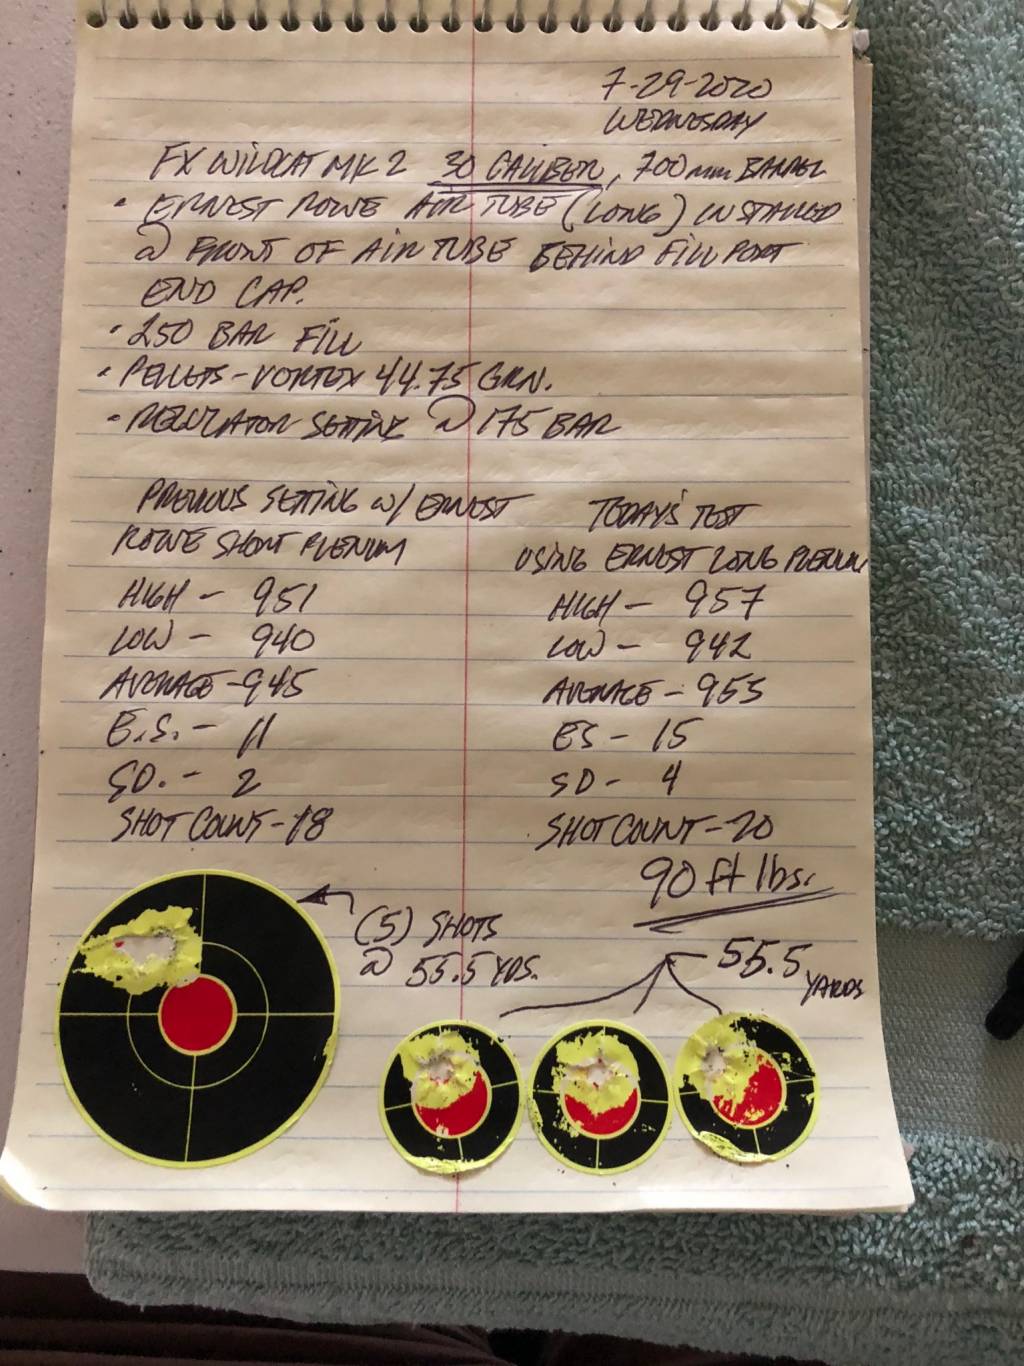 7-29-2020
WEDNESDAY
FX WILDCAT MK2 30 CALIBER, 700mm BARREL
• ERNEST ROWE AIR TUBE (LONG) INSTALLED
@ FRONT OF AIR TUBE BEHIND FILL PORT
END CAP.
• 250 BAR FILL
• PELLETS - VORTEX 44.75 GRN.
• REGULATOR SETTING @ 175 BAR
PREVIOUS SETTING W/ ERNEST
ROWE SHORT PLENUM
HIGH - 951
LOW - 940
AVERAGE - 945
E.S. - 11
SD. - 2
SHOT COUNT - 18
TODAY'S TEST
USING ERNEST LONG PLENUM
HIGH - 957
LOW - 942
AVERAGE - 953
ES - 15
SD - 4
SHOT COUNT - 20
90 ft lbs.
(5) SHOTS
@ 55.5 YDS.
55.5
YARDS